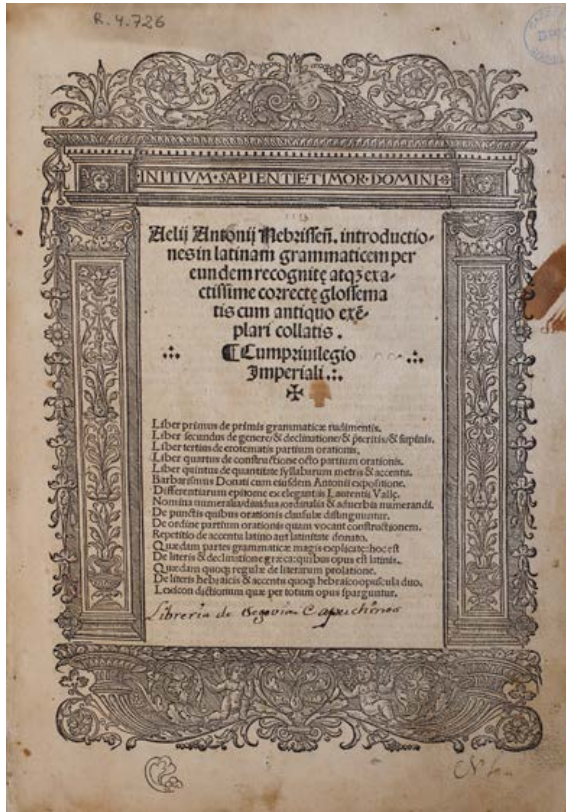 R. 4.726
INITIVM·SAPIENTIE·TIMOR·DOMINI
Aelij Antonij Nebrissen̄. introductio-
nes in latinam grammaticem per
eundem recognitę atqꝫ exa-
ctissime correctę glossema
tis cum antiquo exē-
plari collatis.
¶Cum priuilegio
Imperiali
Liber primus de primis grammaticæ rudimentis.
Liber secundus de genere/& declinatione/& p̄teritis/& supinis.
Liber tertius de erotematis partium orationis.
Liber quartus de constructione octo partium orationis.
Liber quintus de quantitate syllabarum metris & accentu.
Barbarismus Donati cum eiusdem Antonii expositione.
Differentiarum epitome ex elegantiis Laurentii Vallę.
Nomina numeralia/diuidua/ordinalia & aduerbia numerandi.
De punctis quibus orationis clausulæ distinguuntur.
De ordine partium orationis quam vocant constructionem.
Repetitio de accentu latino aut latinitate donato.
Quædam partes grammaticæ magis explicate: hoc est
De literis & declinatione græca: quibus opus est latinis.
Quædam quoqꝫ regulæ de literarum prolatione.
De literis hebraicis & accentu quoqꝫ hebraico opuscula duo.
Lexicon dictionum quæ per totum opus sparguntur.
Libreria de Segovia Capuchinos